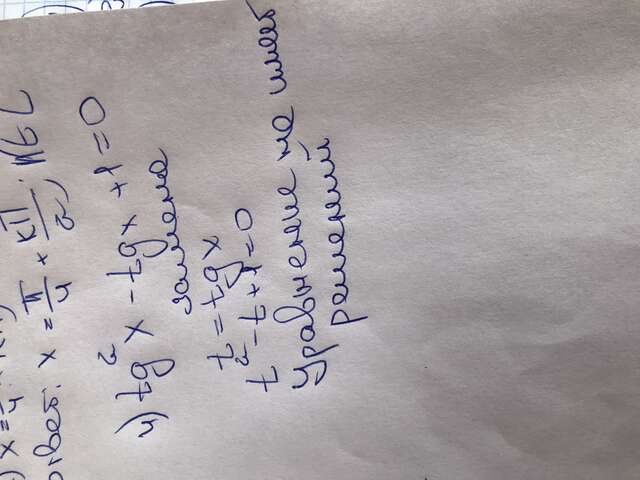 x = π/4
ответ: x = π/4 + kπ/2; k∈Z
4) tg²x - tgx + 1 = 0
замена
t = tgx
t² - t + 1 = 0
Уравнение не имеет
решений